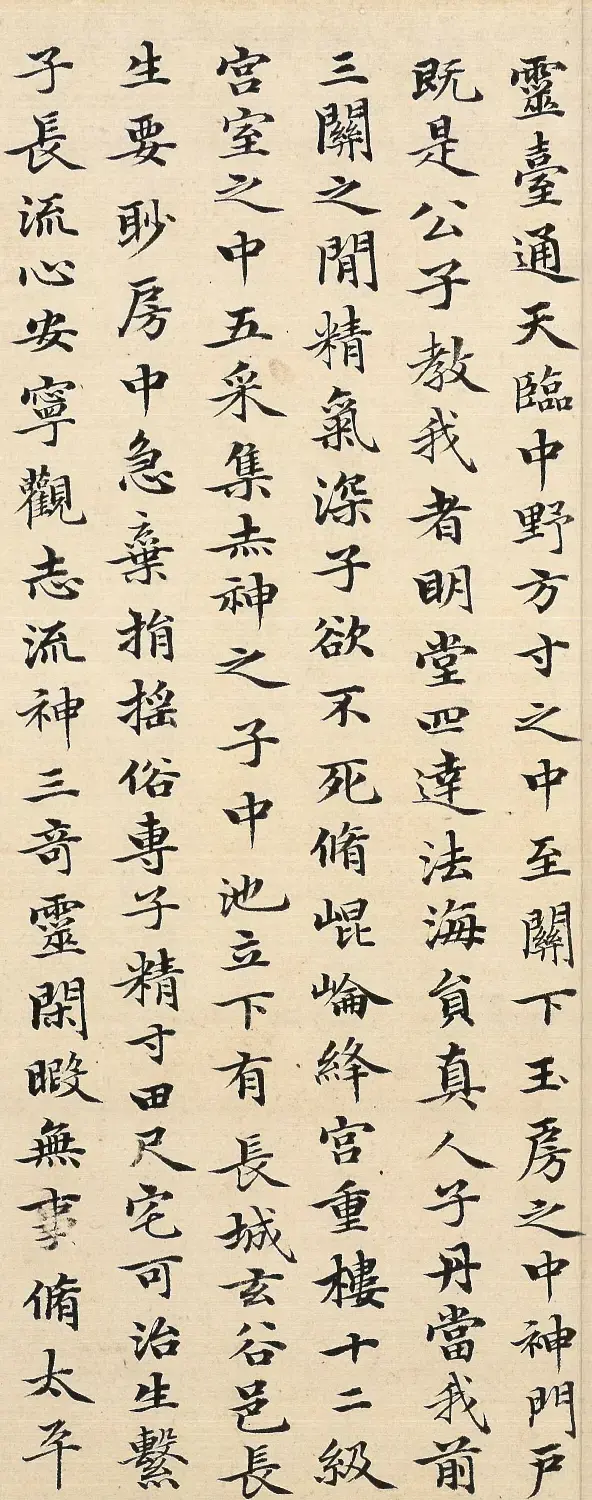 靈臺通天臨中野方寸之中至關下玉房之中神門戶
既是公子教我者明堂四達法海員真人子丹當我前
三關之閒精氣深子欲不死脩崐崘絳宮重樓十二級
宮室之中五采集赤神之子中池立下有長城玄谷邑長
生要眇房中急棄捐搖俗專子精寸田尺宅可治生繫
子長流心安寧觀志流神三奇靈閑暇無事脩太平